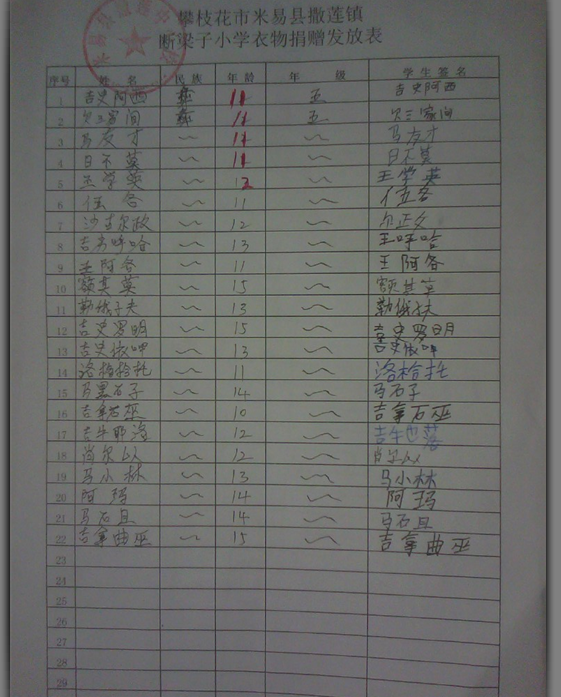 攀枝花市米易县撒莲镇
断梁子小学衣物捐赠发放表
序号 姓 名 民 族 年 龄 年 级 学 生 签 名
1 吉史阿西 彝 11 五 吉史阿西
2 彝 11 五
3 马友才 ~ 11 ~ 马友才
4 日不莫 ~ 11 ~ 日不莫
5 王学英 ~ 12 ~ 王学英
6 伍各 ~ 11 ~ 伍各
7 沙吉尔政 ~ 12 ~
8 ~ 13 ~ 王呼哈
9 王阿各 ~ 11 ~ 王阿各
10 额其莫 ~ 15 ~ 额其莫
11 勒俄子夫 ~ 13 ~
12 吉史罗明 ~ 15 ~ 吉史罗明
13 吉史依呷 ~ 13 ~ 吉史依呷
14 ~ 11 ~ 洛格托
15 马黑石子 ~ 14 ~ 马石子
16 吉拿石巫 ~ 10 ~ 吉拿石巫
17 ~ 12 ~ 吉牛也洛
18 ~ 12 ~
19 马小林 ~ 13 ~ 马小林
20 阿玛 ~ 14 ~ 阿玛
21 马石且 ~ 14 ~ 马石且
22 吉拿曲巫 ~ 15 ~ 吉拿曲巫
23
24
25
26
27
28
29